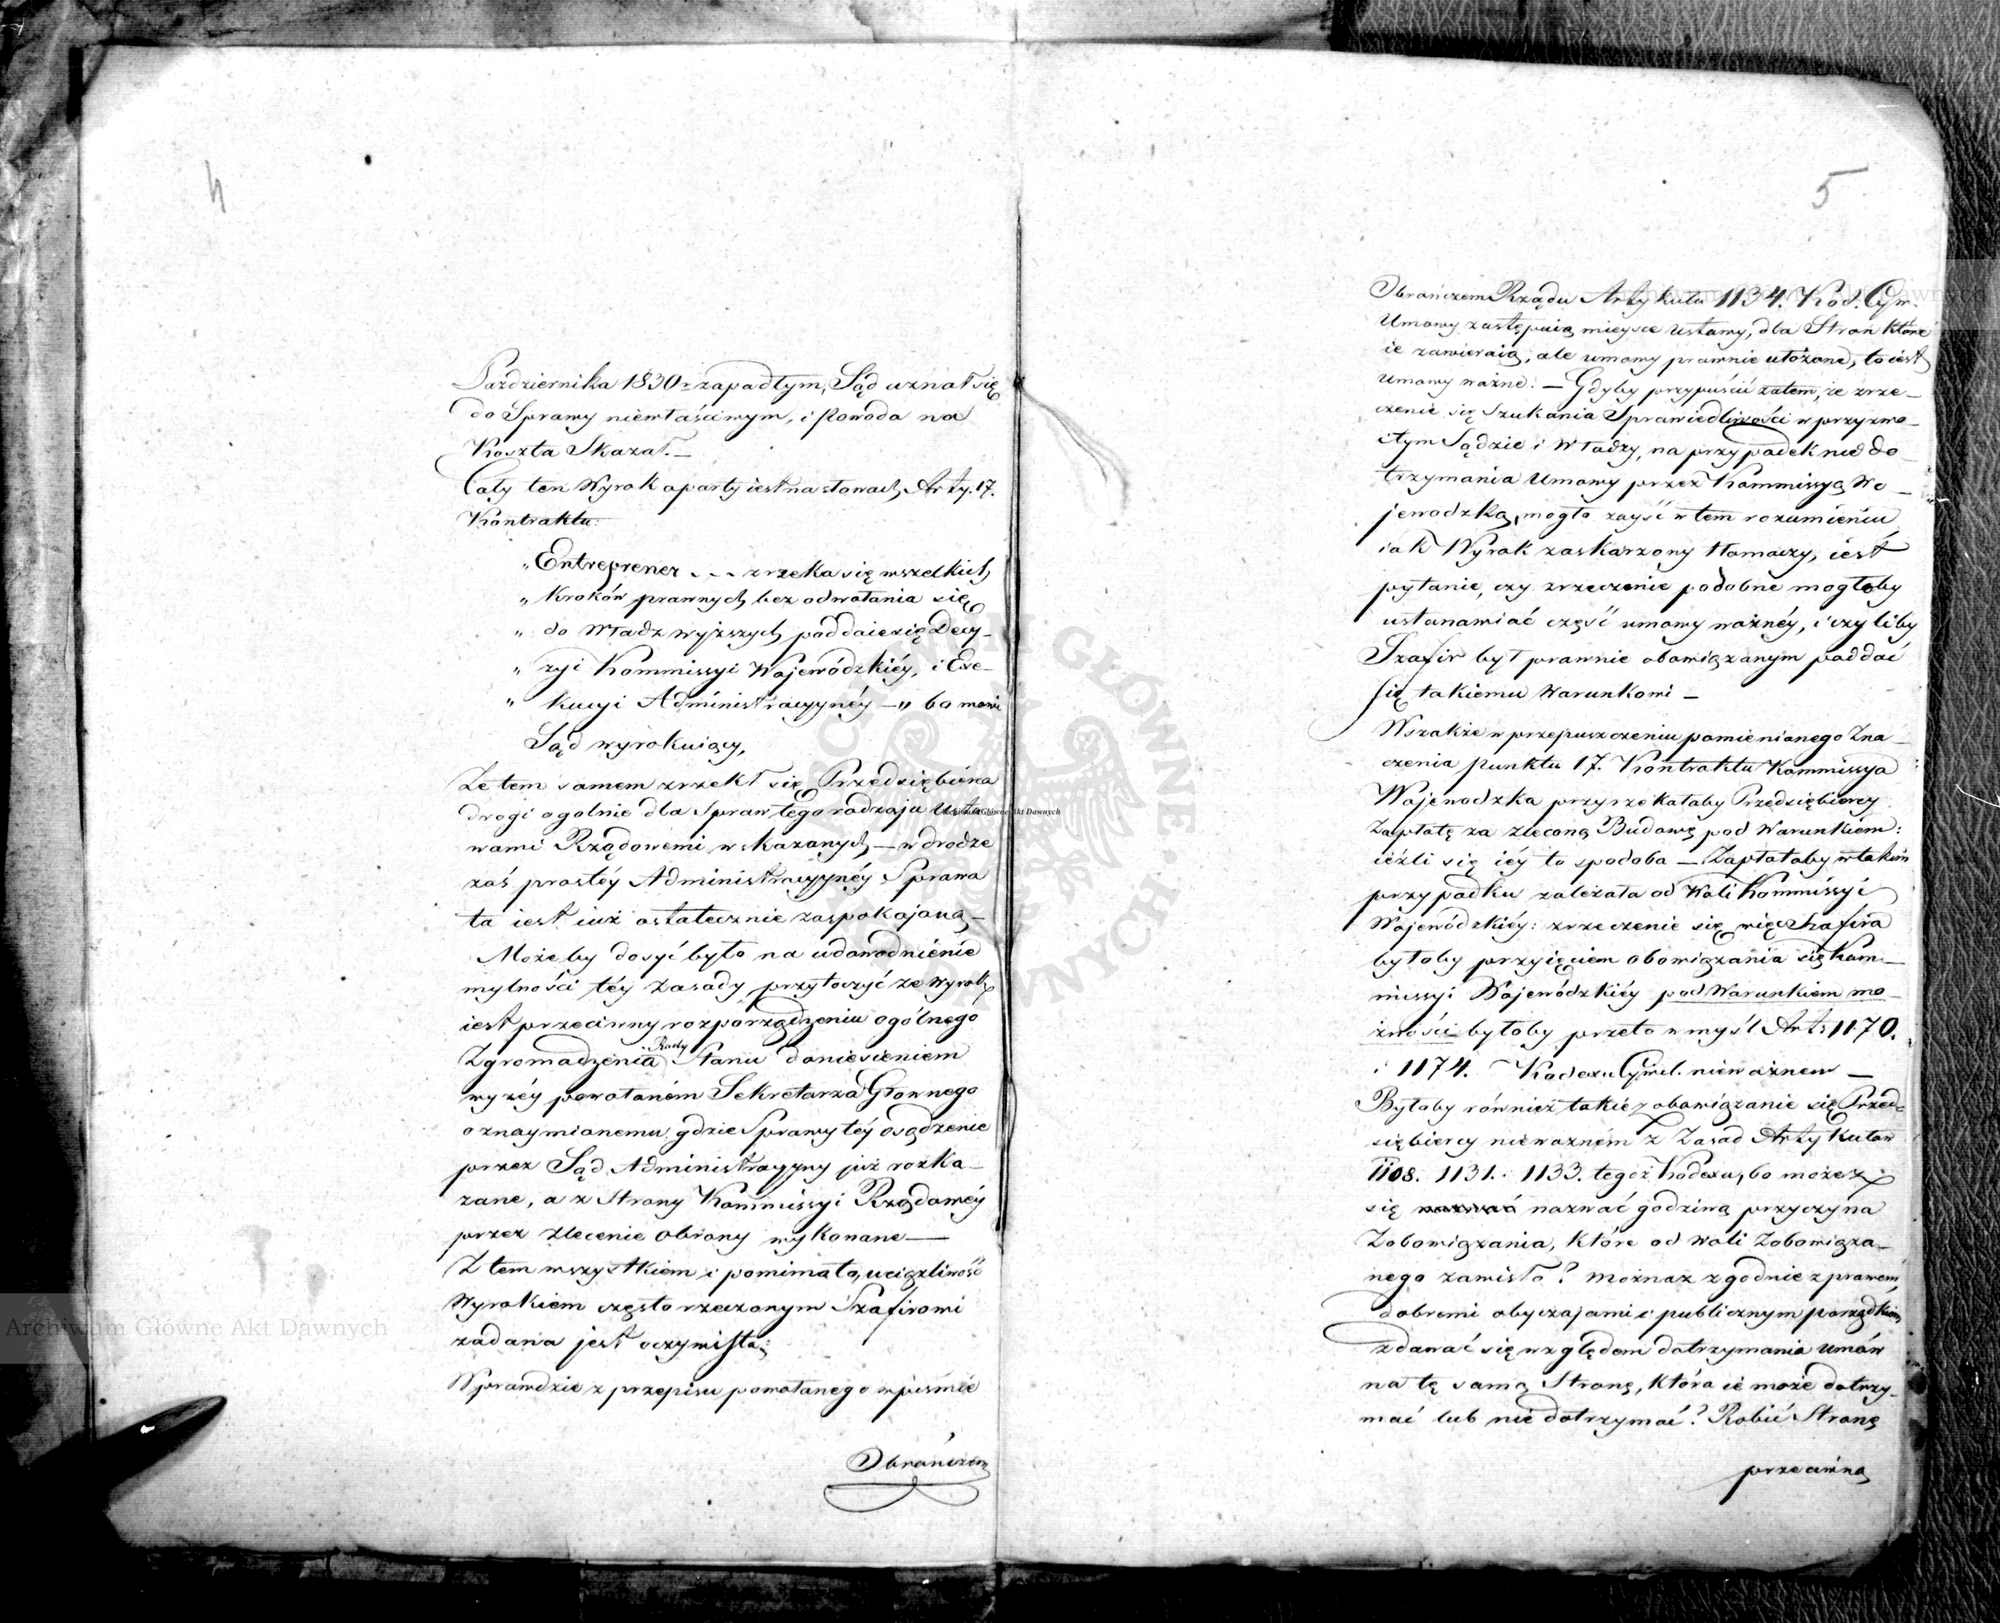 4
Października 1830 r. zapadłym, Sąd uznał się
do Sprawy niewłaściwym, i Powoda na
Koszta Skazał. —
Cały ten Wyrok oparty iest na słowach Arty. 17.
Kontraktu.
„ Entreprener - - - zrzeka się wszelkich
„ Kroków prawnych bez odwołania się
„ do Władz wyższych poddaie się Decy-
„ zyi Kommissyi Wojewódzkiéy, i Exe-
„ kucyi Administracyynéy — „ bo mowi
Sąd wyrokuiący,
Że tem samem zrzekł się Przedsiębiorca
drogi ogolnie dla Spraw tego rodzaju Usta-
wami Rządowemi wskazanych — w drodze
zaś prostéy Administracyynéy Sprawa
ta iest iuż ostatecznie zaspokojoną —
Możeby dosyć było na udowodnienie
mylności téy zasady przytoczyć że Wyrok
iest przeciwny rozporządzeniu ogólnego
Zgromadzenia Rady Stanu doniesieniem
wyżéy powołaném Sekretarza Głownego
oznaymionemu, gdzie Sprawy téy osądzenie
przez Sąd Administracyyny już rozka-
zane, a z Strony Kommissyi Rządowéy
przez zlecenie obrony wykonane —
Z tem wszystkiem i pomimo to, uciążliwość
Wyrokiem często rzeczonym Szafirowi
zadana jest oczywista;
Wprawdzie z przepisu powołanego w piśmie
Obrończem
5
Obrończem Rządu Artykułu 1134. Kod. Cyw.
Umowy zastępuią mieysce Ustawy, dla Stron które
ie zawieraią, ale umowy prawnie ułożone, to iest
Umowy ważne: — Gdyby przypuścić zatem, że zrze-
czenie się Szukania Sprawiedliwości w przyzwo-
itym Sądzie i Władzy, na przypadek nie do-
trzymania Umowy przez Kommissyą Wo-
jewodzką, mogło zayść w tem rozumieniu
iak Wyrok zaskarżony tłomaczy, iest
pytanie, czy zrzeczenie podobne mogłoby
ustanawiać część umowy ważnéy, i czyliby
Szafir był prawnie obowiązanym poddać
się takiemu Warunkowi —
Wszakże w przepuszczeniu pomienionego Zna-
czenia punktu 17. Kontraktu Kommissya
Wojewodzka przyrzekałaby Przedsiębiorcy
Zapłatę za zleconą Budowę pod Warunkiem:
ieźli się iéy to spodoba — Zapłataby w takim
przypadku zależała od Woli Kommissyi
Wojewódzkiéy: zrzeczenie się więc Szafira
byłoby przyięciem obowiązania się Kom-
missyi Wojewódzkiéy pod Warunkiem mo-
żności byłoby przeto w myśl Art: 1170.
i 1174. Kodexu Cywil. nieważnem —
Byłoby również takie zobowiązanie się Przed-
siębiercy nieważném z Zasad Artykułow
1108. 1131. i 1133. tegoż Kodexu, bo możeż
się nazwać godziwą przyczyna
Zobowiązania, które od woli Zobowiąza-
nego zawisło? możnaż zgodnie z prawem,
dobremi obyczajami i publicznym porządkiem
zdawać się względem dotrzymania umów
na tę samą Stronę, która ie może dotrzy-
mać lub nie dotrzymać? Robić Stronę
przeciwną
Archiwum Główne Akt Dawnych